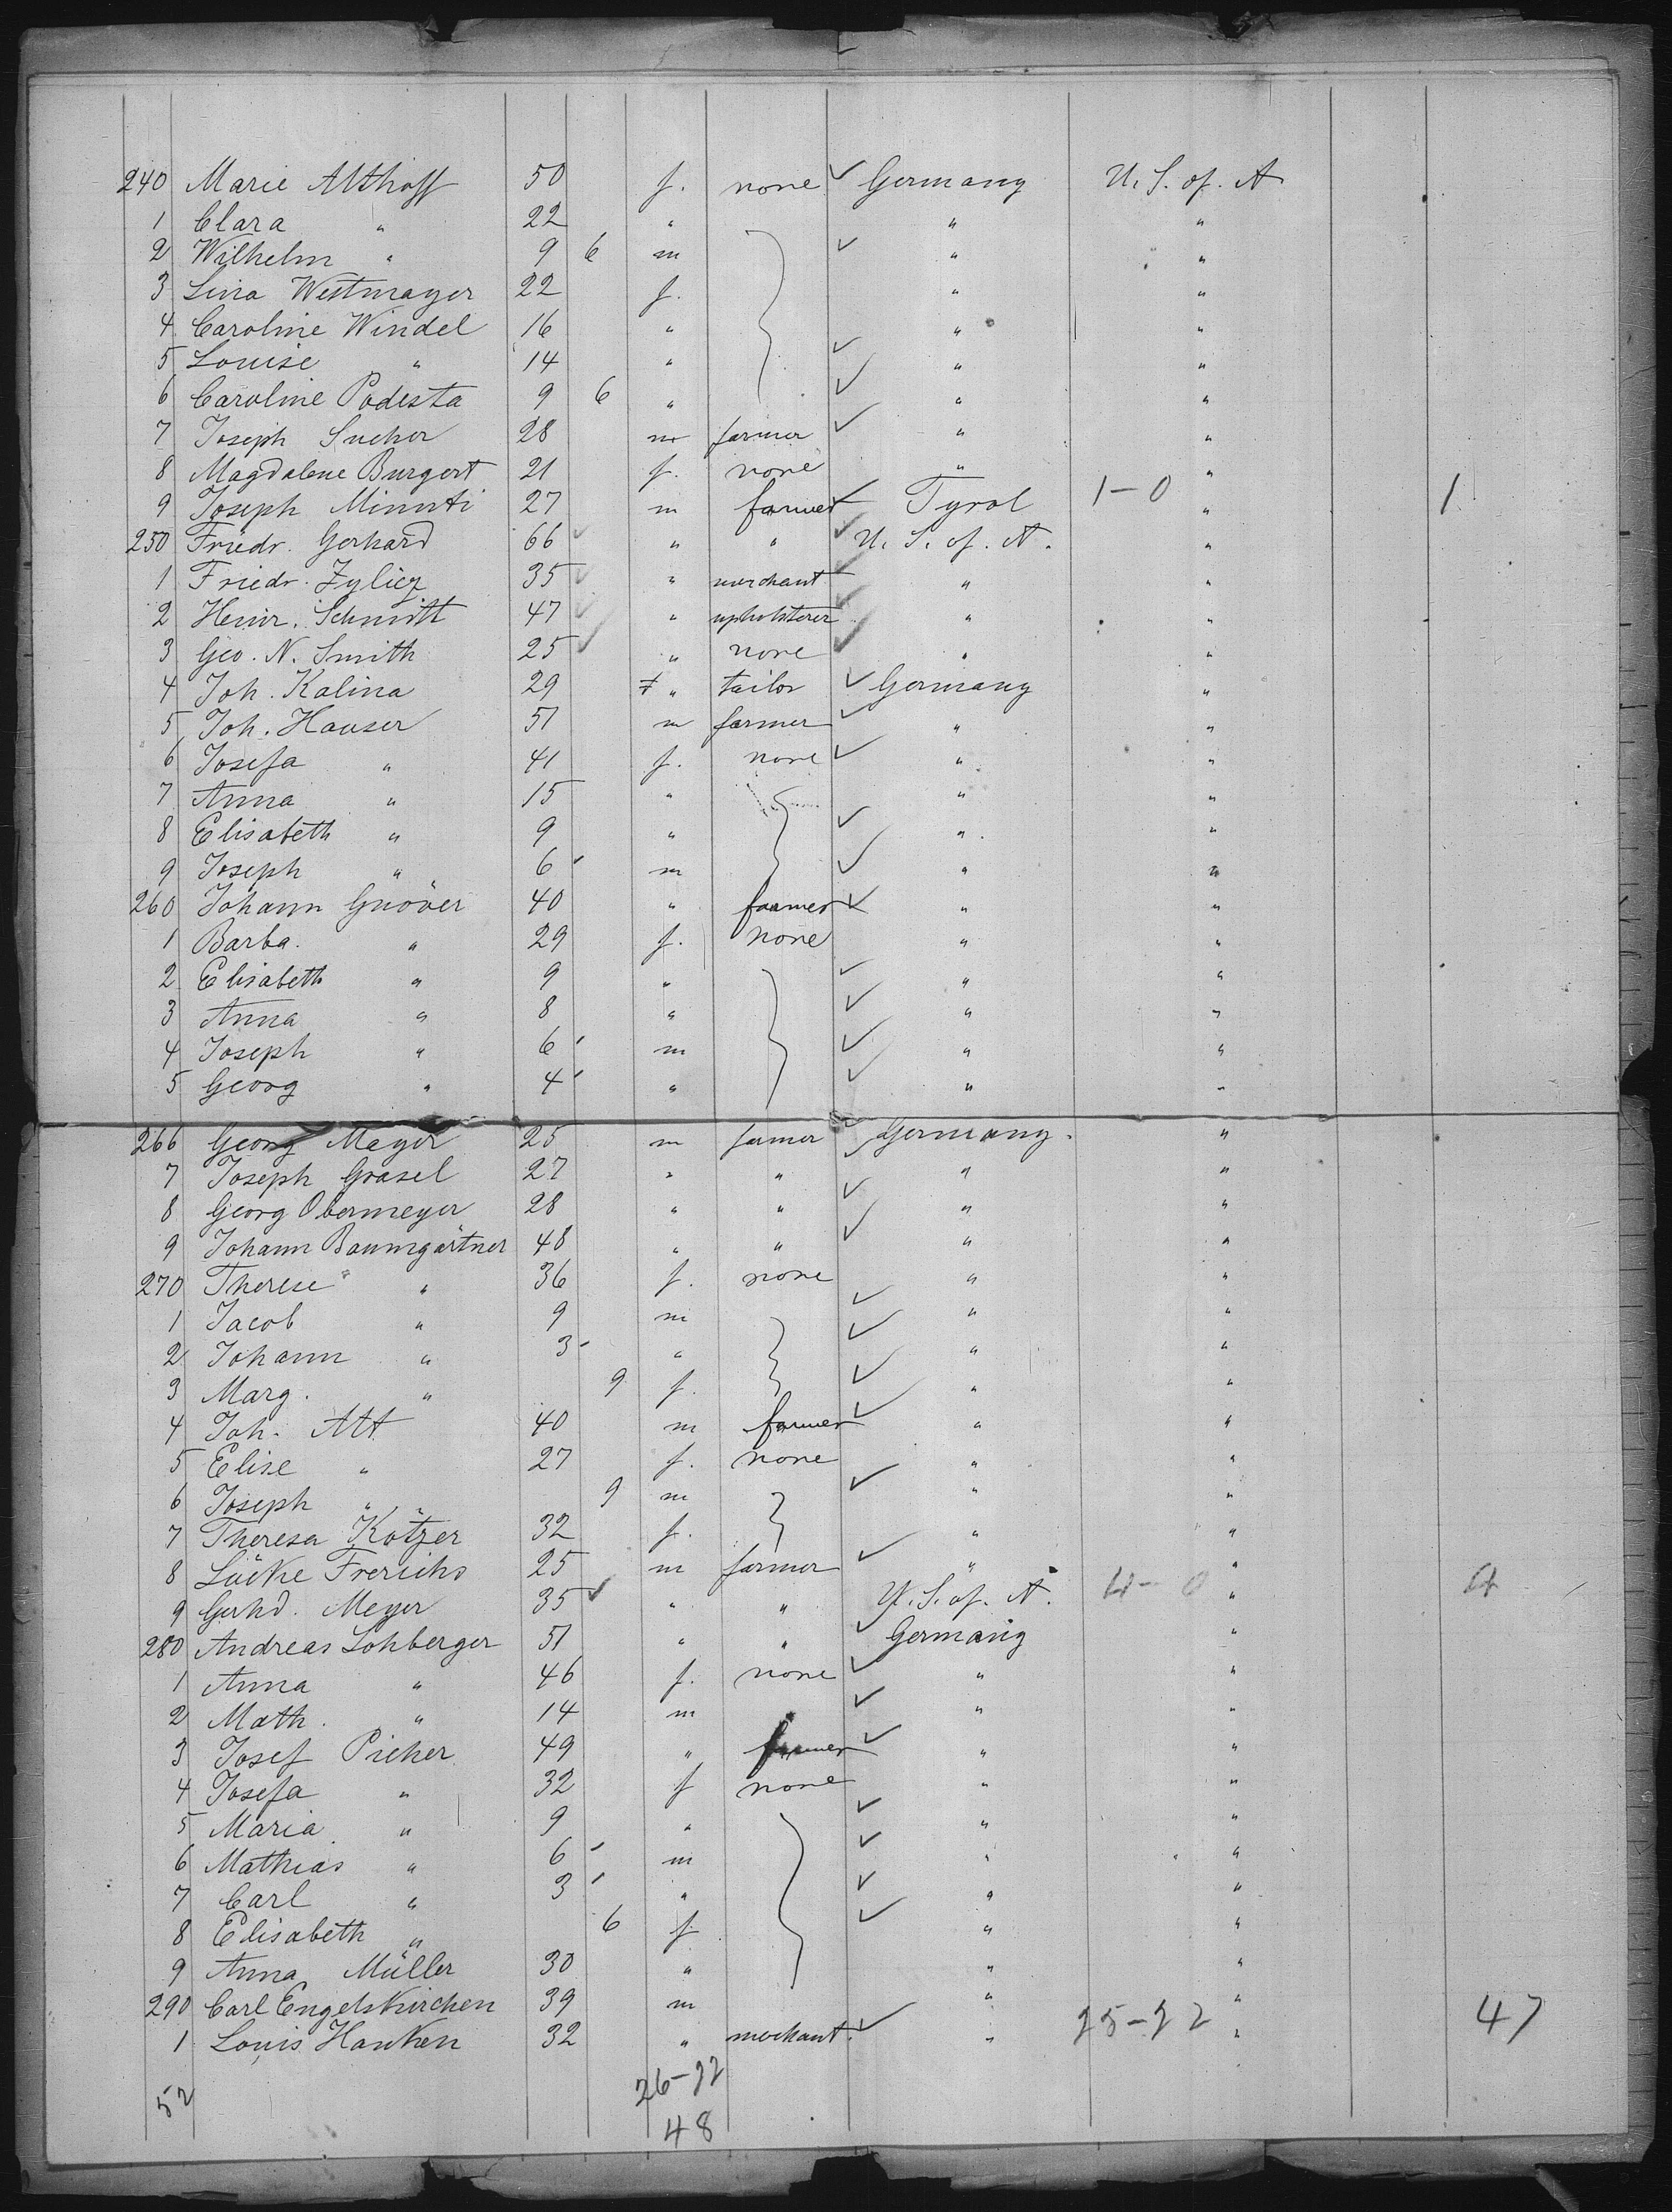 240 Marie Althoff 50 f. none ✓ Germany U. S. of. A
1 Clara " 22 " " "
2 Wilhelm " 9 6 m ✓ " "
3 Lina Westmayer 22 f. " "
4 Caroline Windel 16 " " "
5 Louise " 14 " ✓ " "
6 Caroline Podesta 9 6 " ✓ " "
7 Joseph Sucher 28 m farmer ✓ " "
8 Magdalene Burgert 21 f. none " "
9 Joseph Minuti 27 m farmer ✓ Tyrol 1-0 " 1
250 Friedr. Gerhard 66 ✓ " " ✓ U. S. of. A. "
1 Friedr. Zyliez 35 ✓ " merchant ✓ " "
2 Heinr. Schmidt 47 ✓ " upholsterer ✓ " "
3 Geo. N. Smith 25 ✓ " none ✓ " "
4 Joh. Kalina 29 " tailor ✓ Germany "
5 Joh. Hauser 51 m farmer ✓ " "
6 Josefa " 41 f. none ✓ " "
7 Anna " 15 " " "
8 Elisabeth " 9 " ✓ " "
9 Joseph " 6 m ✓ " "
260 Johann Gnöver 40 " farmer ✓ " "
1 Barba. " 29 f. none " "
2 Elisabeth " 9 " ✓ " "
3 Anna " 8 " ✓ " "
4 Joseph " 6 m ✓ " "
5 Georg " 4 " ✓ " "
266 Georg Meyer 25 m farmer ✓ Germany. "
7 Joseph Grasel 27 " " " "
8 Georg Obermeyer 28 " " ✓ " "
9 Johann Baumgärtner 48 " " ✓ " "
270 Therese " 36 f. none " "
1 Jacob " 9 m ✓ " "
2 Johann " 3 " ✓ " "
3 Marg. " 9 f. ✓ " "
4 Joh. Alt 40 m farmer ✓ " "
5 Elise " 27 f. none " "
6 Joseph " 9 m ✓ " "
7 Theresa Kötzer 32 f. " "
8 Lücke Frerichs 25 m farmer ✓ " "
9 Gerhd. Meyer 35 ✓ " " U. S. of. A. 4-0 " 4
280 Andreas Lohberger 51 " " ✓ Germany "
1 Anna " 46 f. none ✓ " "
2 Math. " 14 m ✓ " "
3 Josef Picher 49 " farmer ✓ " "
4 Josefa " 32 f none " "
5 Maria " 9 " ✓ " "
6 Mathias " 6 m ✓ " "
7 Carl " 3 " ✓ " "
8 Elisabeth " 6 f ✓ " "
9 Anna Müller 30 " " "
290 Carl Engelskirchen 39 m " "
1 Louis Hanken 32 " merchant. ✓ " 25-22 " 47
52 26-22
48